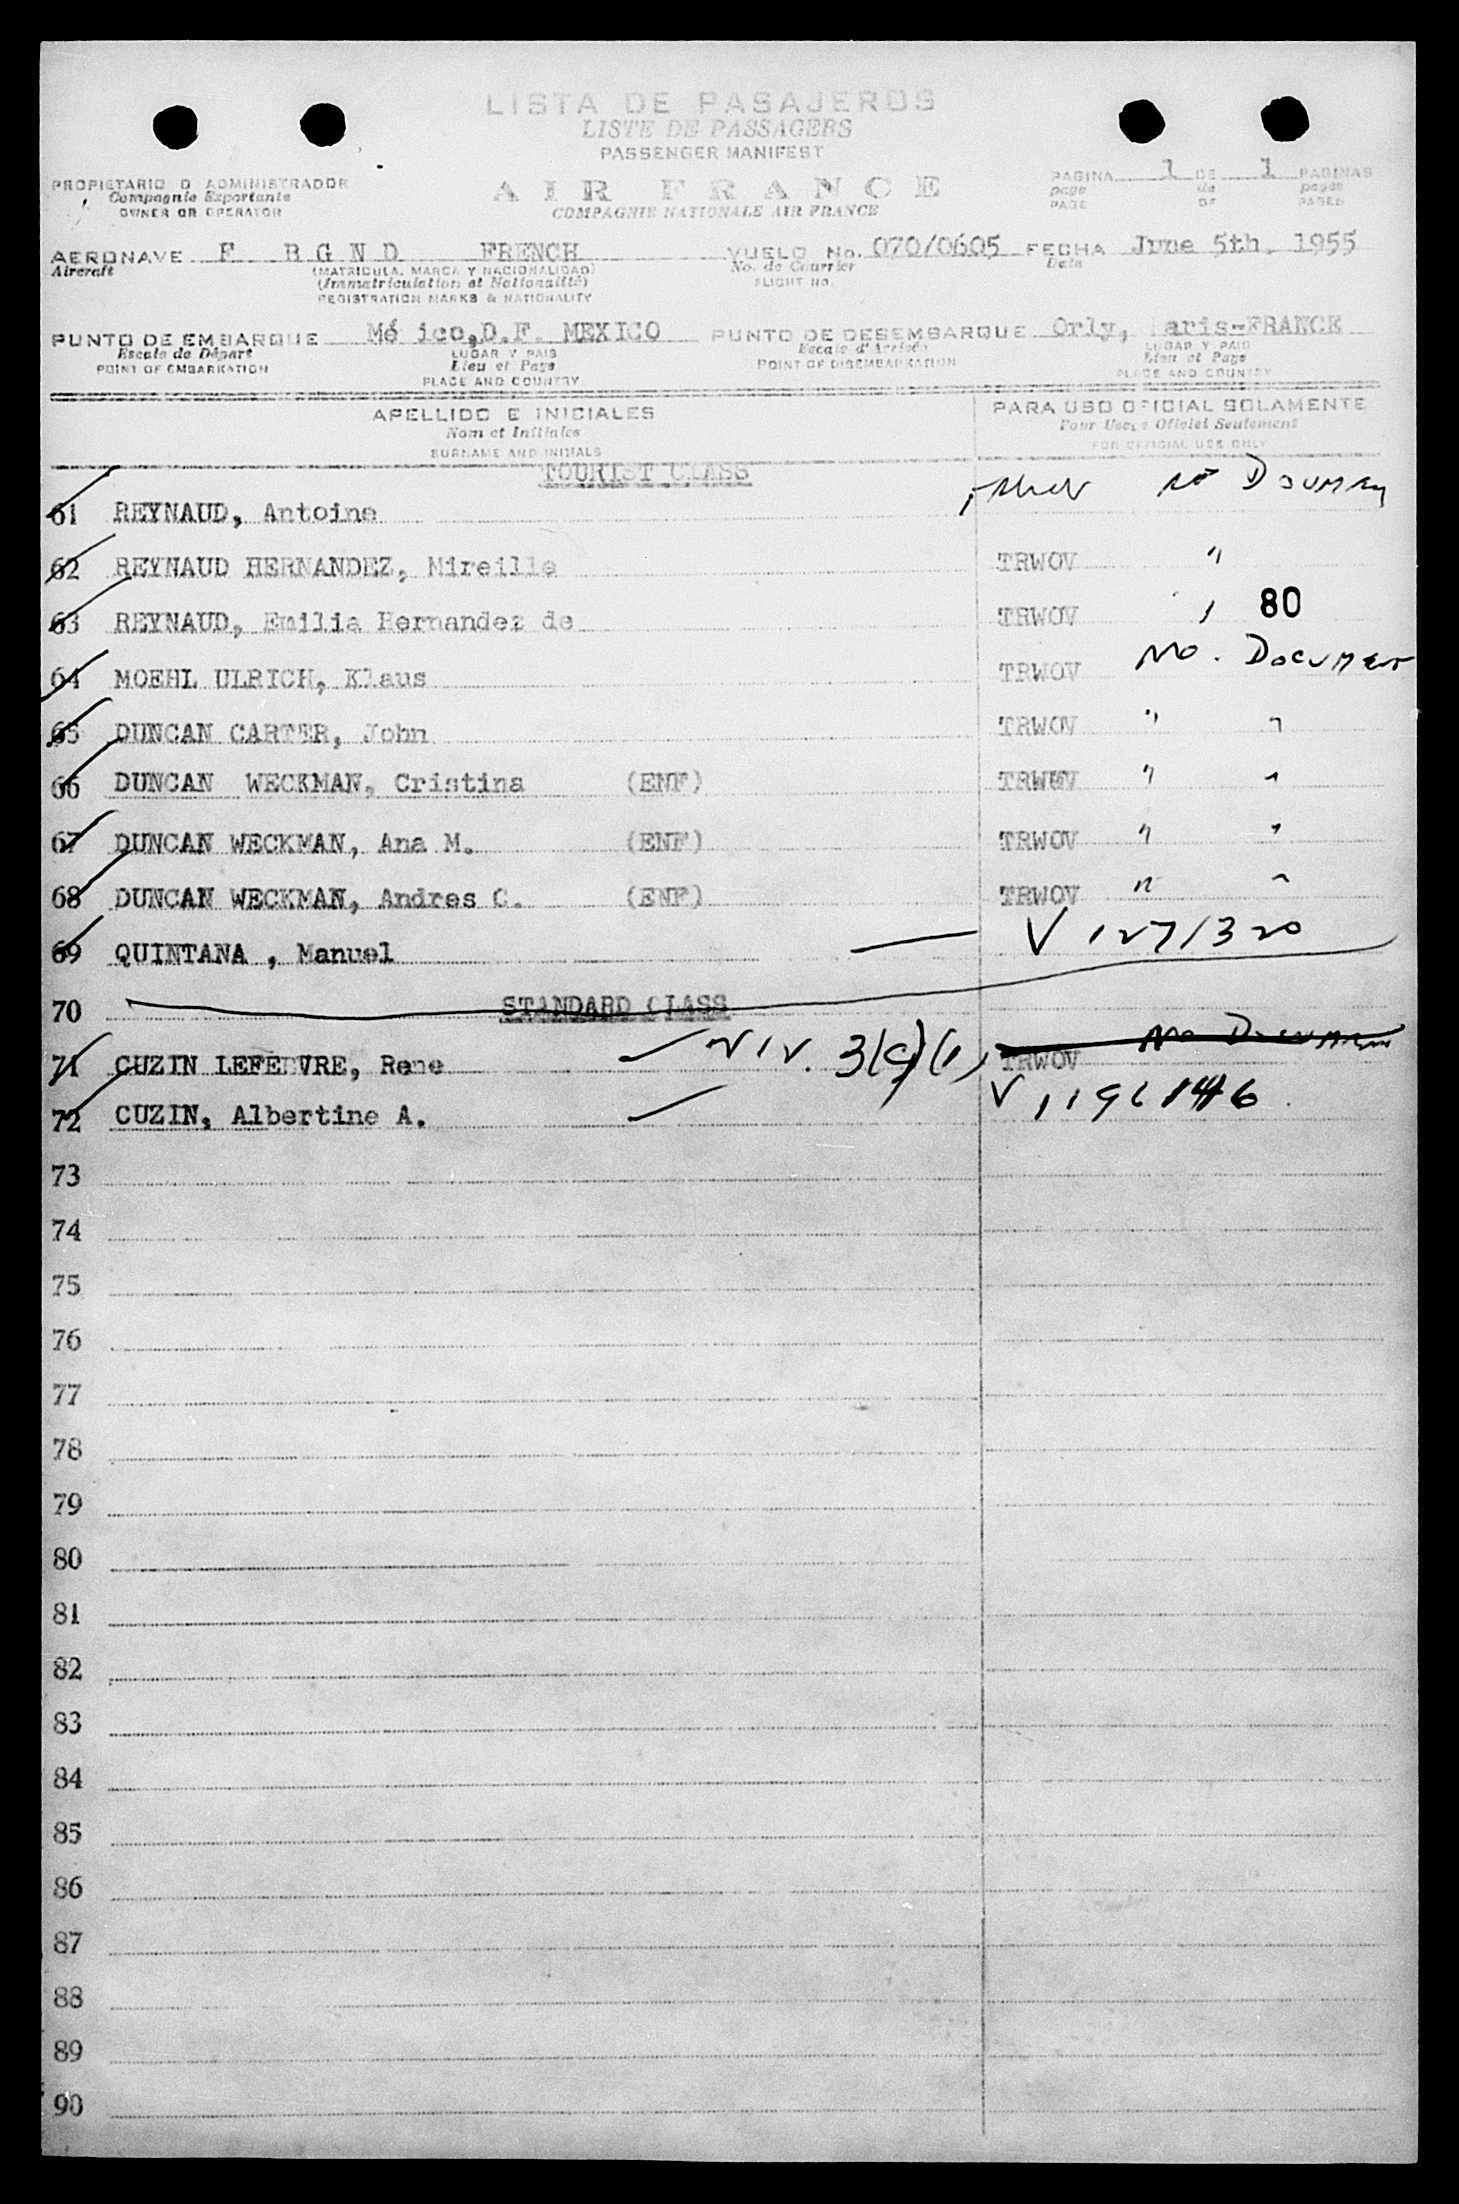 LISTA DE PASAJEROS
LISTE DE PASSAGERS
PASSENGER MANIFEST
PROPIETARIO O ADMINISTRADOR
Compagnie Exportante
OWNER OR OPERATOR
AIR FRANCE
COMPAGNIE NATIONALE AIR FRANCE
PAGINA 1 DE 1 PAGINAS
page de pages
PAGE OF PAGES
AERONAVE F BGND FRENCH VUELO No. 070/0605 FECHA June 5th, 1955
Aircraft (MATRICULA, MARCA Y NACIONALIDAD) No. de Courrier Date
(Immatriculation et Nationalité) FLIGHT No.
REGISTRATION MARKS & NATIONALITY
PUNTO DE EMBARQUE Mé ico,D.F. MEXICO PUNTO DE DESEMBARQUE Orly, aris-FRANCE
Escale de Départ LUGAR Y PAIS Escale d'Arrivée LUGAR Y PAIS
POINT OF EMBARKATION Lieu et Pays POINT OF DISEMBARKATION Lieu et Pays
PLACE AND COUNTRY PLACE AND COUNTRY
APELLIDO E INICIALES PARA USO OFICIAL SOLAMENTE
Nom et Initiales Pour Usage Officiel Seulement
SURNAME AND INITIALS FOR OFFICIAL USE ONLY
TOURIST CLASS
61 REYNAUD, Antoine No
62 REYNAUD HERNANDEZ, Mireille TRWOV "
63 REYNAUD, Emilia Hernandez de TRWOV 80
64 MOEHL ULRICH, Klaus TRWOV No. Document
65 DUNCAN CARTER, John TRWOV " "
66 DUNCAN WECKMAN, Cristina (ENF) TRWOV " "
67 DUNCAN WECKMAN, Ana M. (ENF) TRWOV " "
68 DUNCAN WECKMAN, Andres C. (ENF) TRWOV " "
69 QUINTANA , Manuel V 1271320
70 STANDARD CLASS
71 CUZIN LEFEBVRE, Rene NIV. 3(c)(1) TRWOV No Document
72 CUZIN, Albertine A.
73
74
75
76
77
78
79
80
81
82
83
84
85
86
87
88
89
90